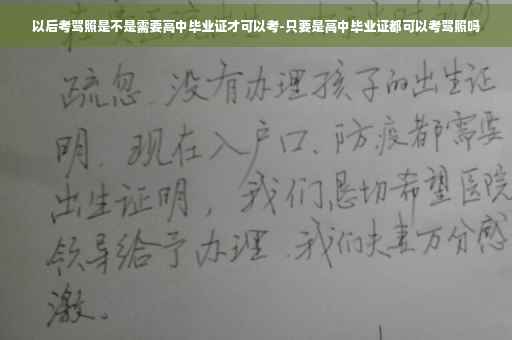 以后考驾照是不是需要高中毕业证才可以考-只要是高中毕业证都可以考驾照吗
疏忽、没有办理孩子的出生证
明、现在入户口、防疫都需要
出生证明，我们恳切希望医院
领导给予办理、我们夫妻万分感
激。